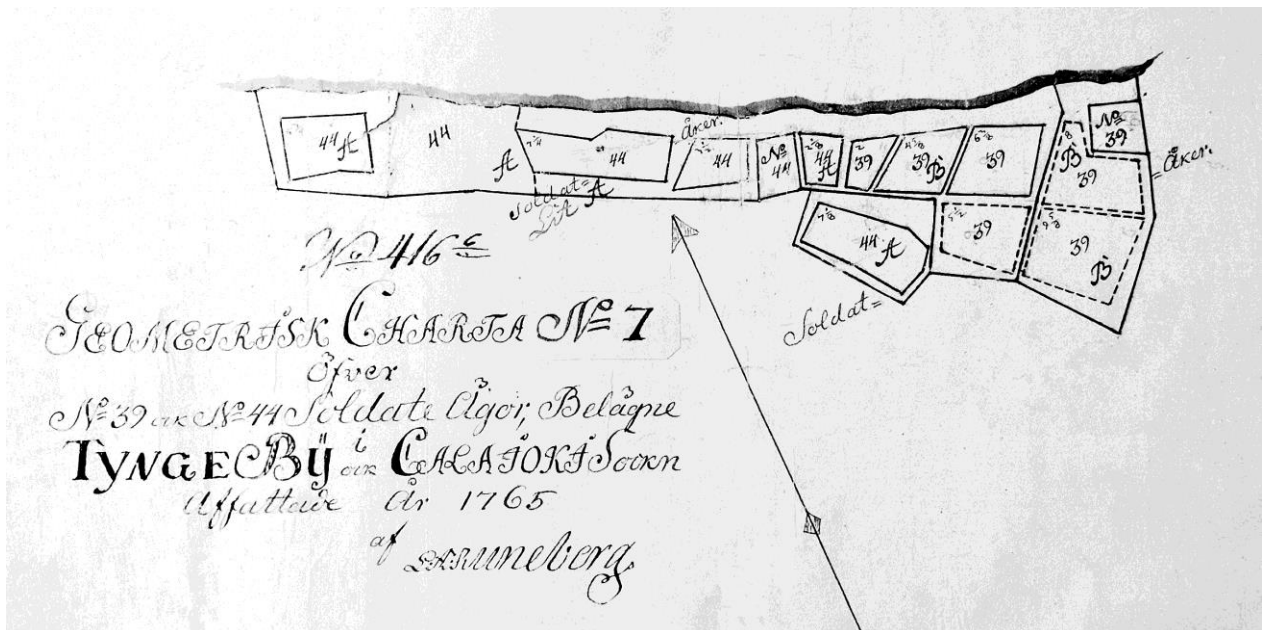 44 A
44
A
7 3/4
44
Åker.
44
No
44
44
A
2
39
39
B
39
No
39
8
B
39
Åker.
39
39
B
44 A
Soldat=
A
Soldat=
No 416
GEOMETRISK CHARTA No 7
Öfver
No 39 ock No 44 Soldate Ägor, Belägne
TYNGE BŸ i
ock CALAJOKI Sockn
Affattade År 1765
af
Runeberg.